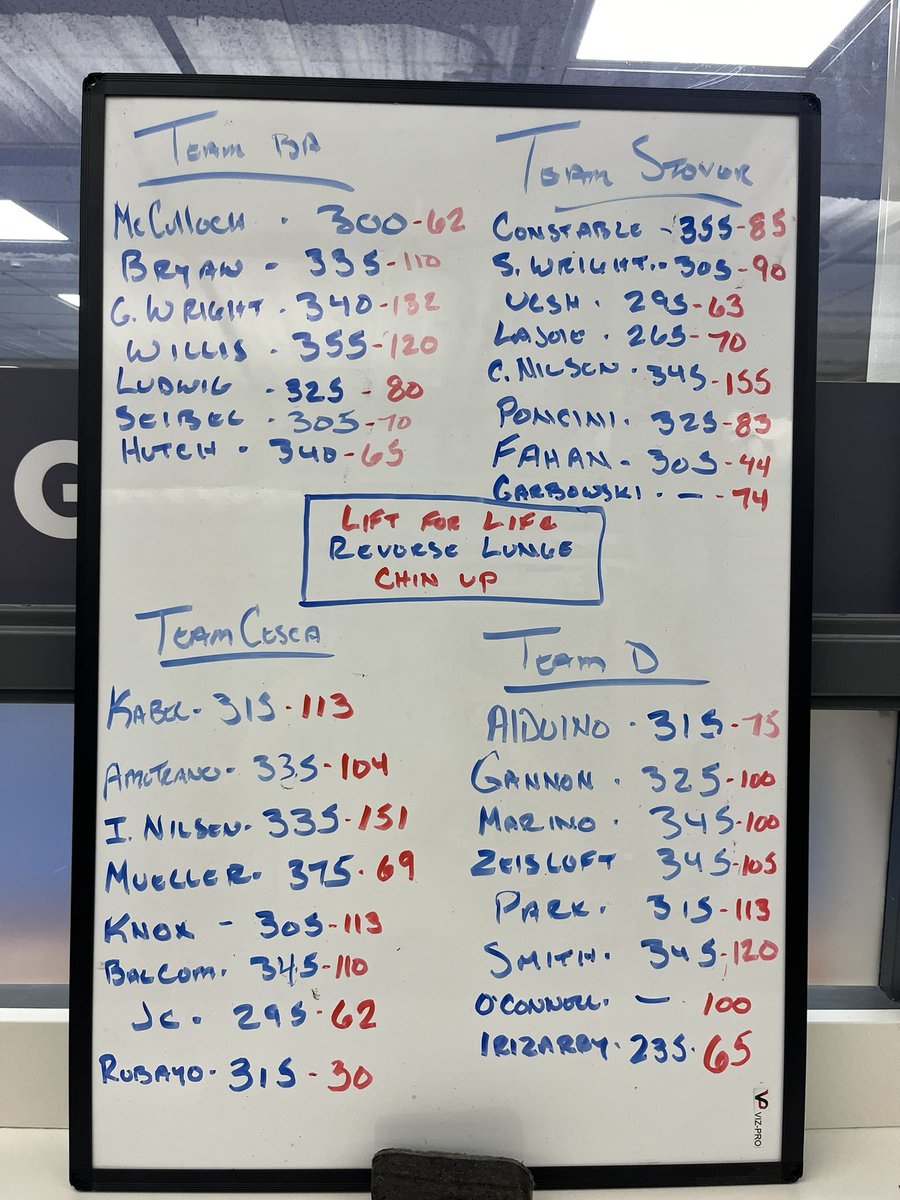 TEAM BA
McCulloch · 300-62
BRYAN - 335-110
G. WRIGHT · 340-132
WILLIS - 355-120
LUDWIG · 325 - 80
SEIBEL · 305-70
HUTCH · 340-65
TEAM STOVER
CONSTABLE - 355-85
S. WRIGHT · 305-90
UESH · 295-63
LAJOIE · 265-70
C. NILSEN · 345-155
PONCINI · 325-83
FAHAN - 305-44
GARBOWSKI · — -74
LIFT FOR LIFE
REVERSE LUNGE
CHIN UP
TEAM CESCA
KABEL - 315-113
335-104
I. NILSEN - 335-151
MUELLER - 375-69
KNOX - 305-113
BALCOM · 345-110
JC · 295-62
RUBAYO · 315-30
TEAM D
AIDUINO · 315-75
GANNON · 325-100
MARINO · 345-100
ZEISLOFT 345-105
PARK · 315-113
SMITH · 345-120
O'CONNELL · — 100
IRIZARRY · 235-65
G
VIZ-PRO